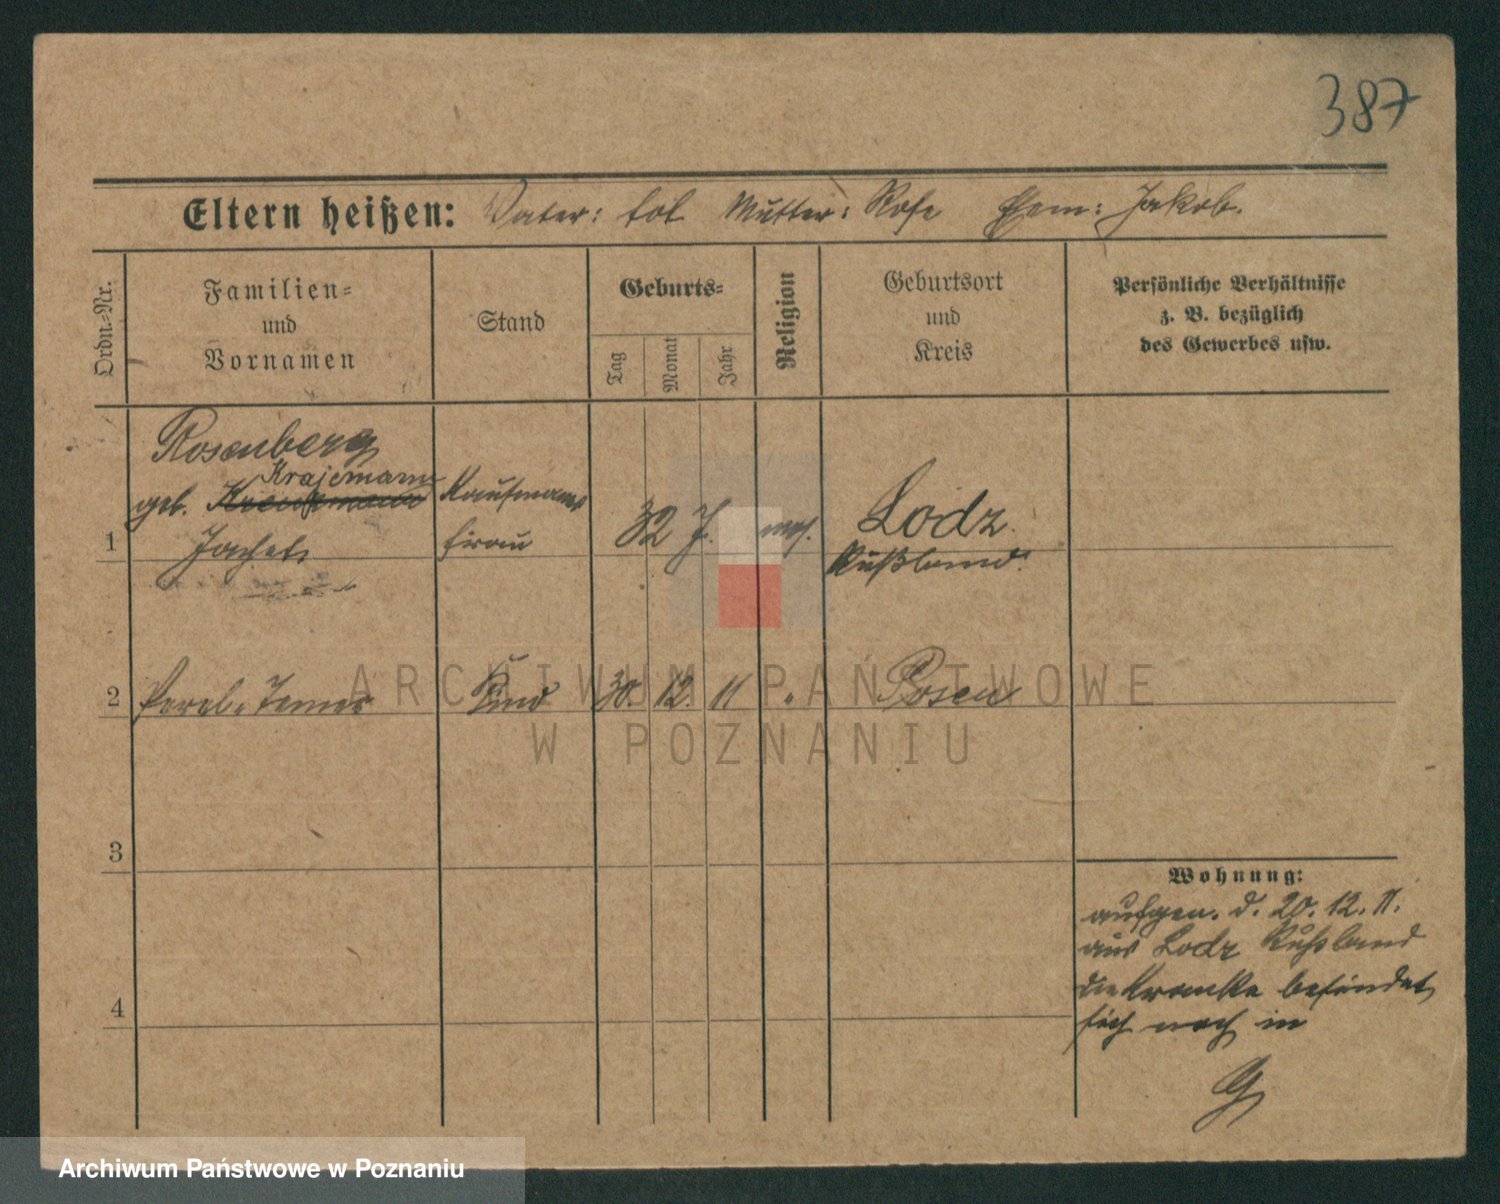 387
Eltern heißen: Vater: tot Mutter: Rose Ehem: Jakob.
Ordn.-Nr.
Familien-
und
Vornamen
Stand
Geburts-
Tag
Monat
Jahr
Religion
Geburtsort
und
Kreis
Persönliche Verhältnisse
z. B. bezüglich
des Gewerbes usw.
Rosenberg
Krajemann
geb.
1
Kaufmanns
frau
32 J.
mos.
Lodz
Rußland.
2 Perel Kind 30. 12. 11 " Posen
3
4
Wohnung:
aufgen. d. 20. 12. 11.
aus Lodz Rußland
die Kranke befindet
sich noch in
ARCHIWUM PAŃSTWOWE
W POZNANIU
Archiwum Państwowe w Poznaniu